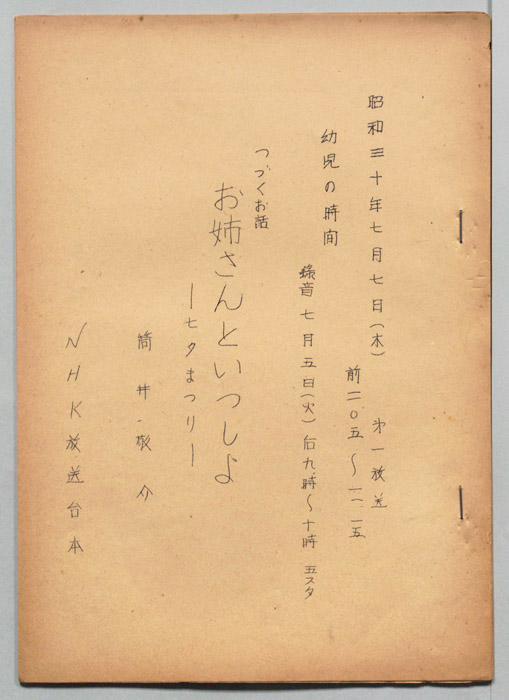 昭和三十年七月七日(木) 第一放送
前一〇、〇五〜一〇、一五
幼児の時间
錄音 七月五日(火) 后九時〜十時 五スタ
つづくお話
お姉さんといつしよ
ー七夕まつりー
筒井・敬介
NHK放送台本